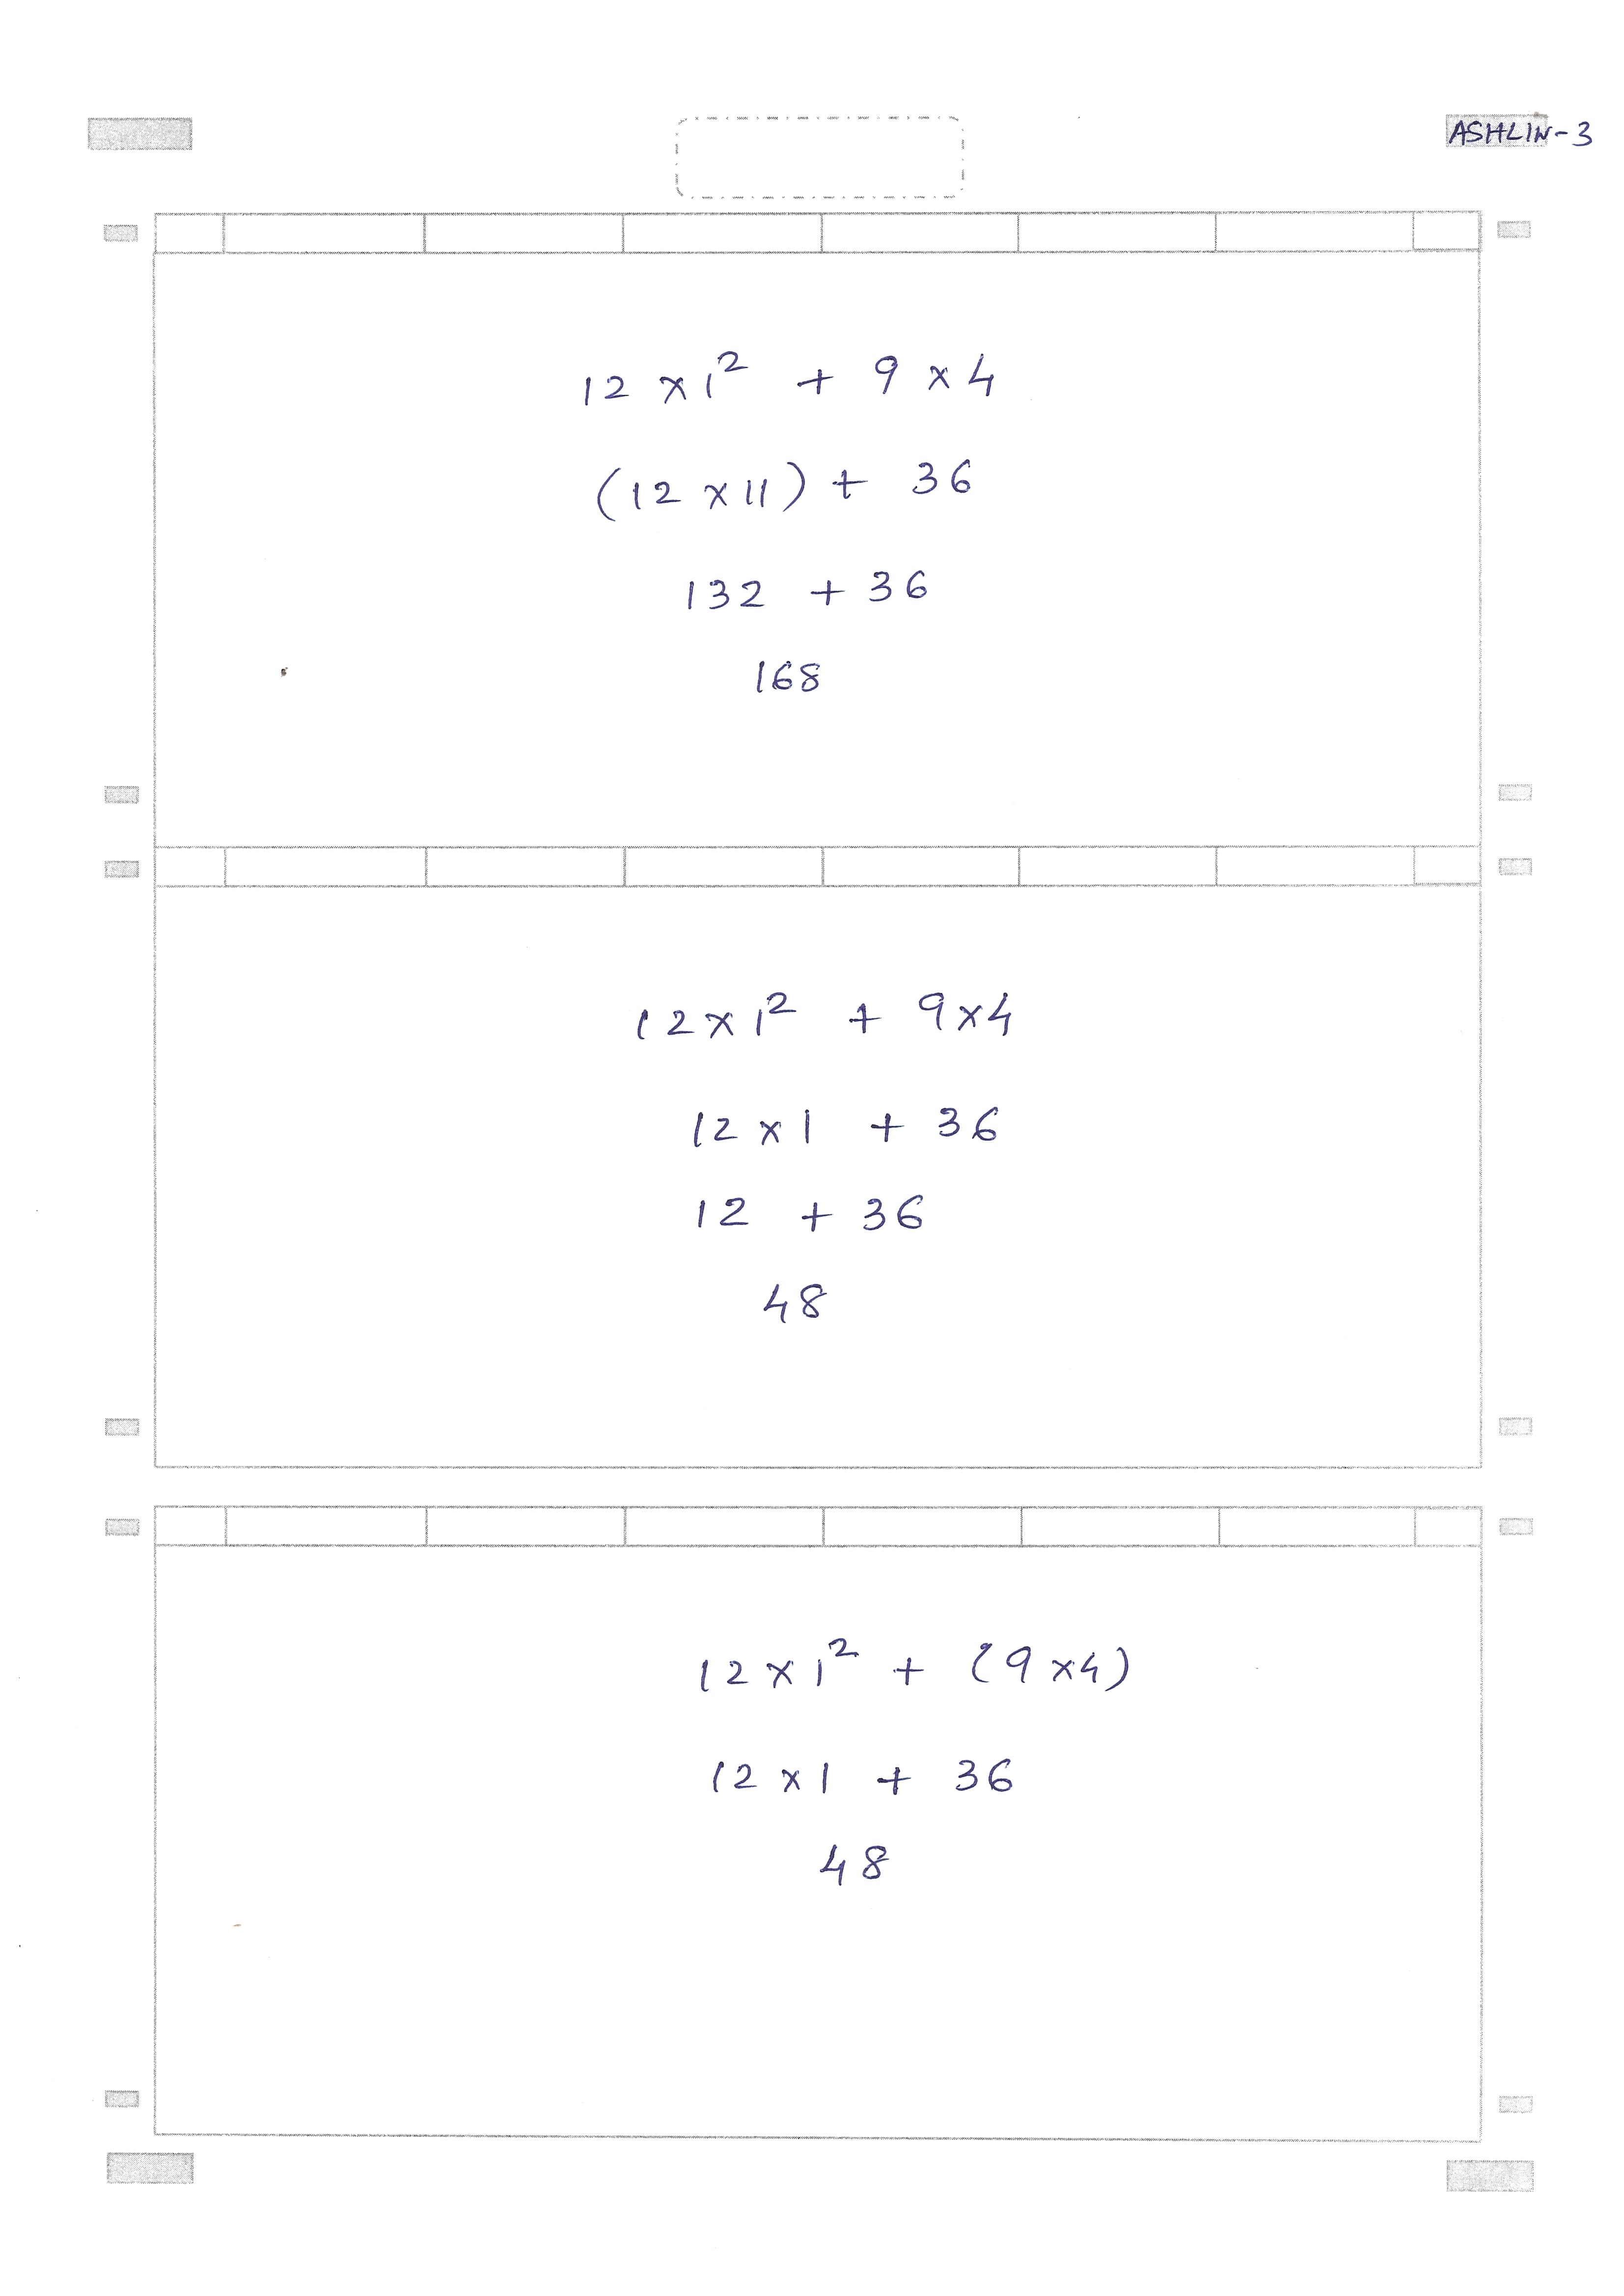 ASHLIN-3
12 × 1² + 9 × 4
(12 × 11) + 36
132 + 36
168
12 × 1² + 9 × 4
12 × 1 + 36
12 + 36
48
12 × 1² + (9 × 4)
12 × 1 + 36
48